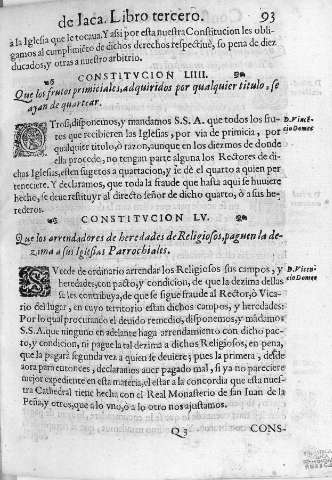 de Jaca. Libro tercero. 93
a la Iglesia que le tocaua. Y assi por esta nuestra Constitucion les obli-
gamos al cumplimiẽto de dichos derechos respectiuè, so pena de diez
ducados, y otras a nuestro arbitrio.
CONSTITVCION LIIII.
Que los frutos primiciales, adquiridos por qualquier titulo, se
ayan de quartear.
OTrosi, disponemos, y mandamos S.S.A. que todos los fru-
tes que recibieren las Iglesias, por via de primicia, por
qualquier titulo, ò razon, aunque en los diezmos de donde
ella procede, no tengan parte alguna los Rectores de di-
chas Iglesias, esten sugetos a quartacion, y se dè el quarto a quien per-
teneciere. Y declaramos, que toda la fraude que hasta aqui se huuiere
hecho, se deue restituyr al directo señor de dicho quarto, ò a sus he-
rederos.
D. Vincẽ-
cio Domec
CONSTITVCION LV.
Que los arrendadores de heredades de Religiosos, paguen la de-
zima a sus Iglesias Parrochiales.
SVcede de ordinario arrendar los Religiosos sus campos, y
heredades, con pacto, y condicion, de que la dezima dellas
se les contribuya, de que se sigue fraude al Rector, ò Vica-
rio del lugar, en cuyo territorio estan dichos campos, y heredades.
Por lo qual procurando el deuido remedio, disponemos, y mãdamos
S.S.A. que ninguno en adelante haga arrendamiento con dicho pac-
to, y condicion, ni pague la tal dezima a dichos Religiosos, en pena,
que la pagarà segunda vez a quien se deuiere; pues la primera, desde
aora para entonces, declaramos auer pagado mal, si ya no pareciere
mejor expediente en esta materia, el estar a la concordia que esta nues-
tra Cathedral tiene hecha con el Real Monasterio de san Iuan de la
Peña, y otros, que a lo vno, ò a lo otro nos ajustamos.
D. Vincẽ-
cio Domec
Q 3 CONS-